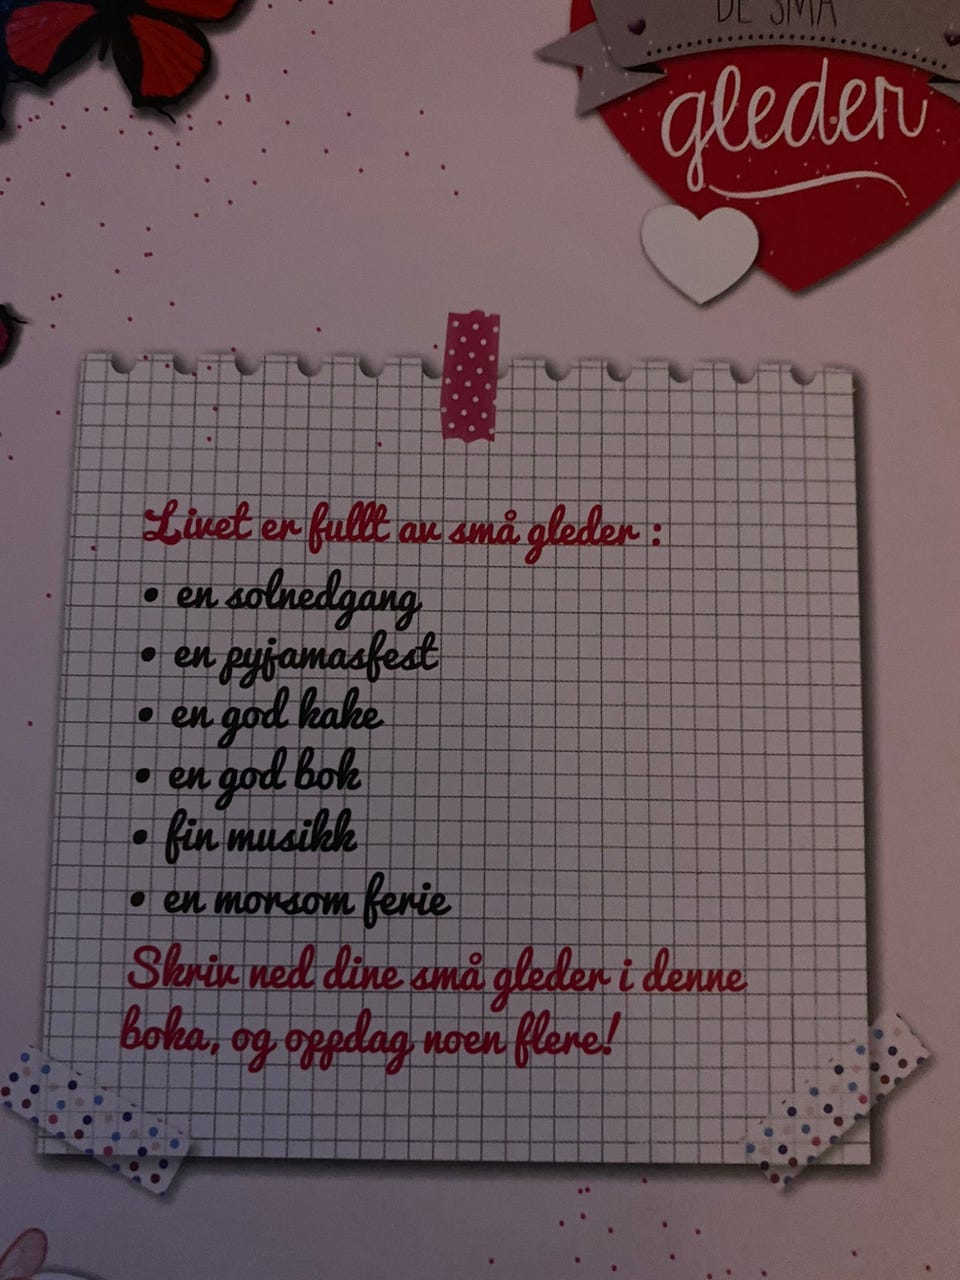 DE SMÅ
gleder
Livet er fullt av små gleder :
• en solnedgang
• en pyjamasfest
• en god kake
• en god bok
• fin musikk
• en morsom ferie
Skriv ned dine små gleder i denne
boka, og oppdag noen flere!